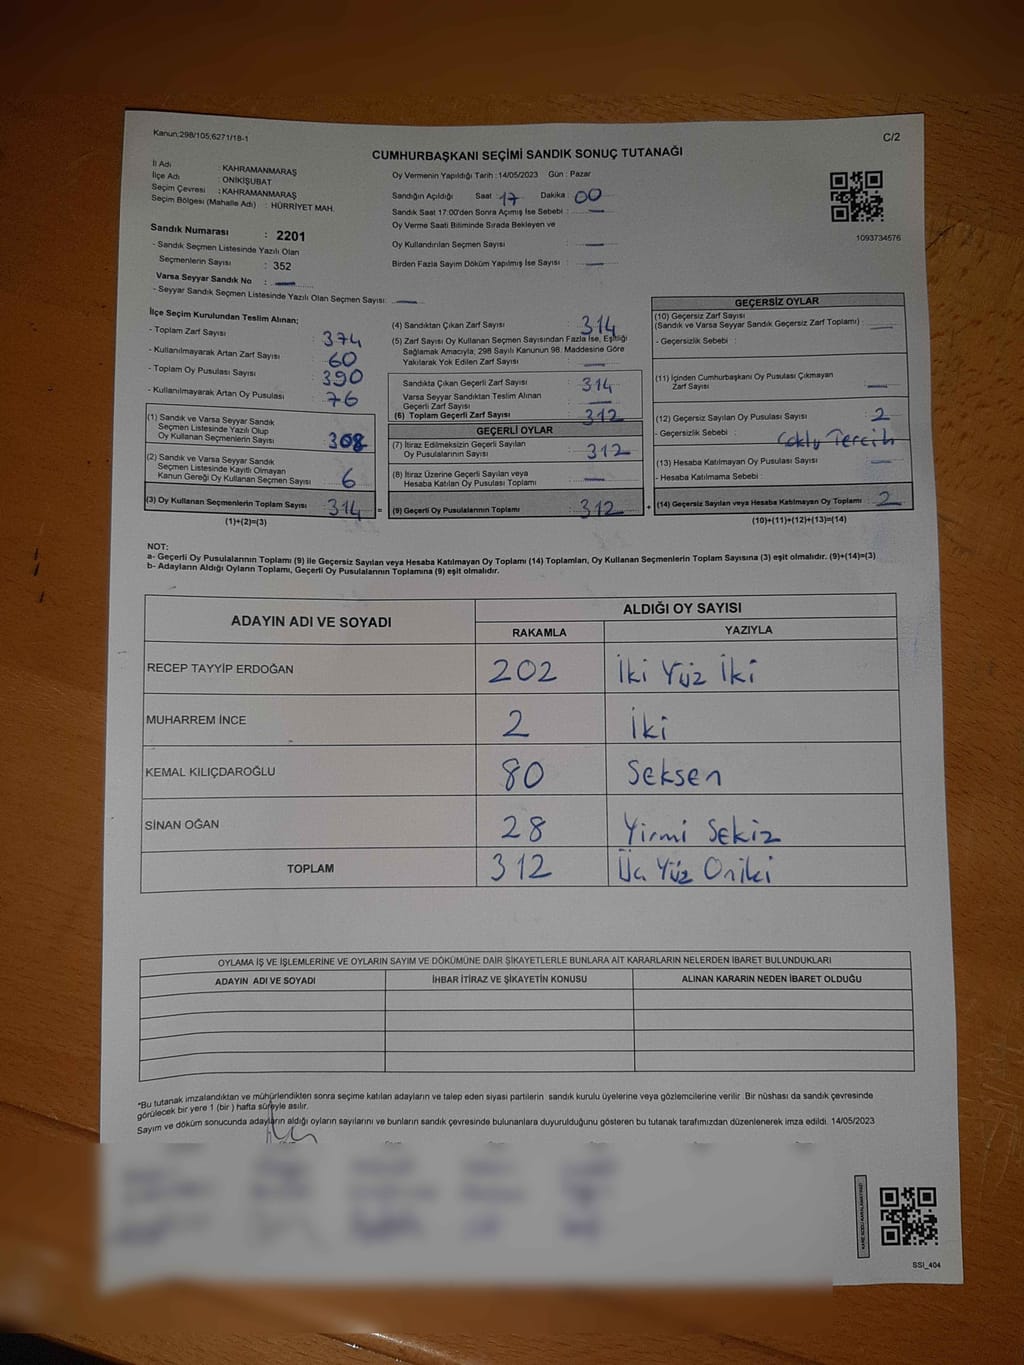 Kanun;298/105,6271/18-1
C/2
CUMHURBAŞKANI SEÇİMİ SANDIK SONUÇ TUTANAĞI
İl Adı : KAHRAMANMARAŞ
İlçe Adı : ONİKİŞUBAT
Seçim Çevresi : KAHRAMANMARAŞ
Seçim Bölgesi (Mahalle Adı) : HÜRRİYET MAH.
Sandık Numarası : 2201
- Sandık Seçmen Listesinde Yazılı Olan
Seçmenlerin Sayısı : 352
Varsa Seyyar Sandık No : —
- Seyyar Sandık Seçmen Listesinde Yazılı Olan Seçmen Sayısı: —
Oy Vermenin Yapıldığı Tarih : 14/05/2023 Gün : Pazar
Sandığın Açıldığı Saat 17 Dakika : 00
Sandık Saat 17:00'den Sonra Açımış İse Sebebi : —
Oy Verme Saati Bitiminde Sırada Bekleyen ve
Oy Kullandırılan Seçmen Sayısı : —
Birden Fazla Sayım Döküm Yapılmış İse Sayısı : —
1093734576
İlçe Seçim Kurulundan Teslim Alınan;
- Toplam Zarf Sayısı : 374
- Kullanılmayarak Artan Zarf Sayısı : 60
- Toplam Oy Pusulası Sayısı : 390
- Kullanılmayarak Artan Oy Pusulası : 76
(1) Sandık ve Varsa Seyyar Sandık
Seçmen Listesinde Yazılı Olup
Oy Kullanan Seçmenlerin Sayısı : 308
(2) Sandık ve Varsa Seyyar Sandık
Seçmen Listesinde Kayıtlı Olmayan
Kanun Gereği Oy Kullanan Seçmen Sayısı : 6
(3) Oy Kullanan Seçmenlerin Toplam Sayısı : 314 =
(1)+(2)=(3)
(4) Sandıktan Çıkan Zarf Sayısı : 314
(5) Zarf Sayısı Oy Kullanan Seçmen Sayısından Fazla İse, Eşitliği
Sağlamak Amacıyla; 298 Sayılı Kanunun 98. Maddesine Göre
Yakılarak Yok Edilen Zarf Sayısı : —
Sandıkta Çıkan Geçerli Zarf Sayısı : 314
Varsa Seyyar Sandıktan Teslim Alınan
Geçerli Zarf Sayısı : —
(6) Toplam Geçerli Zarf Sayısı : 312
GEÇERLİ OYLAR
(7) İtiraz Edilmeksizin Geçerli Sayılan
Oy Pusulalarının Sayısı : 312
(8) İtiraz Üzerine Geçerli Sayılan veya
Hesaba Katılan Oy Pusulası Toplamı : —
(9) Geçerli Oy Pusulalarının Toplamı : 312 +
GEÇERSİZ OYLAR
(10) Geçersiz Zarf Sayısı
(Sandık ve Varsa Seyyar Sandık Geçersiz Zarf Toplamı) : —
- Geçersizlik Sebebi :
(11) İçinden Cumhurbaşkanı Oy Pusulası Çıkmayan
Zarf Sayısı : —
(12) Geçersiz Sayılan Oy Pusulası Sayısı : 2
- Geçersizlik Sebebi : Çoklu Tercih
(13) Hesaba Katılmayan Oy Pusulası Sayısı : —
- Hesaba Katılmama Sebebi :
(14) Geçersiz Sayılan veya Hesaba Katılmayan Oy Toplamı : 2
(10)+(11)+(12)+(13)=(14)
NOT:
a- Geçerli Oy Pusulalarının Toplamı (9) ile Geçersiz Sayılan veya Hesaba Katılmayan Oy Toplamı (14) Toplamları, Oy Kullanan Seçmenlerin Toplam Sayısına (3) eşit olmalıdır. (9)+(14)=(3)
b- Adayların Aldığı Oyların Toplamı, Geçerli Oy Pusulalarının Toplamına (9) eşit olmalıdır.
ADAYIN ADI VE SOYADI ALDIĞI OY SAYISI
RAKAMLA YAZIYLA
RECEP TAYYİP ERDOĞAN 202 İki Yüz İki
MUHARREM İNCE 2 İki
KEMAL KILIÇDAROĞLU 80 Seksen
SİNAN OĞAN 28 Yirmi Sekiz
TOPLAM 312 Üç Yüz Oniki
OYLAMA İŞ VE İŞLEMLERİNE VE OYLARIN SAYIM VE DÖKÜMÜNE DAİR ŞİKAYETLERLE BUNLARA AİT KARARLARIN NELERDEN İBARET BULUNDUKLARI
ADAYIN ADI VE SOYADI İHBAR İTİRAZ VE ŞİKAYETİN KONUSU ALINAN KARARIN NEDEN İBARET OLDUĞU
*Bu tutanak imzalandıktan ve mühürlendikten sonra seçime katılan adayların ve talep eden siyasi partilerin sandık kurulu üyelerine veya gözlemcilerine verilir .Bir nüshası da sandık çevresinde
görülecek bir yere 1 (bir ) hafta süreyle asılır.
Sayım ve döküm sonucunda adayların aldığı oyların sayılarını ve bunların sandık çevresinde bulunanlara duyurulduğunu gösteren bu tutanak tarafımızdan düzenlenerek imza edildi. 14/05/2023
SSI_404